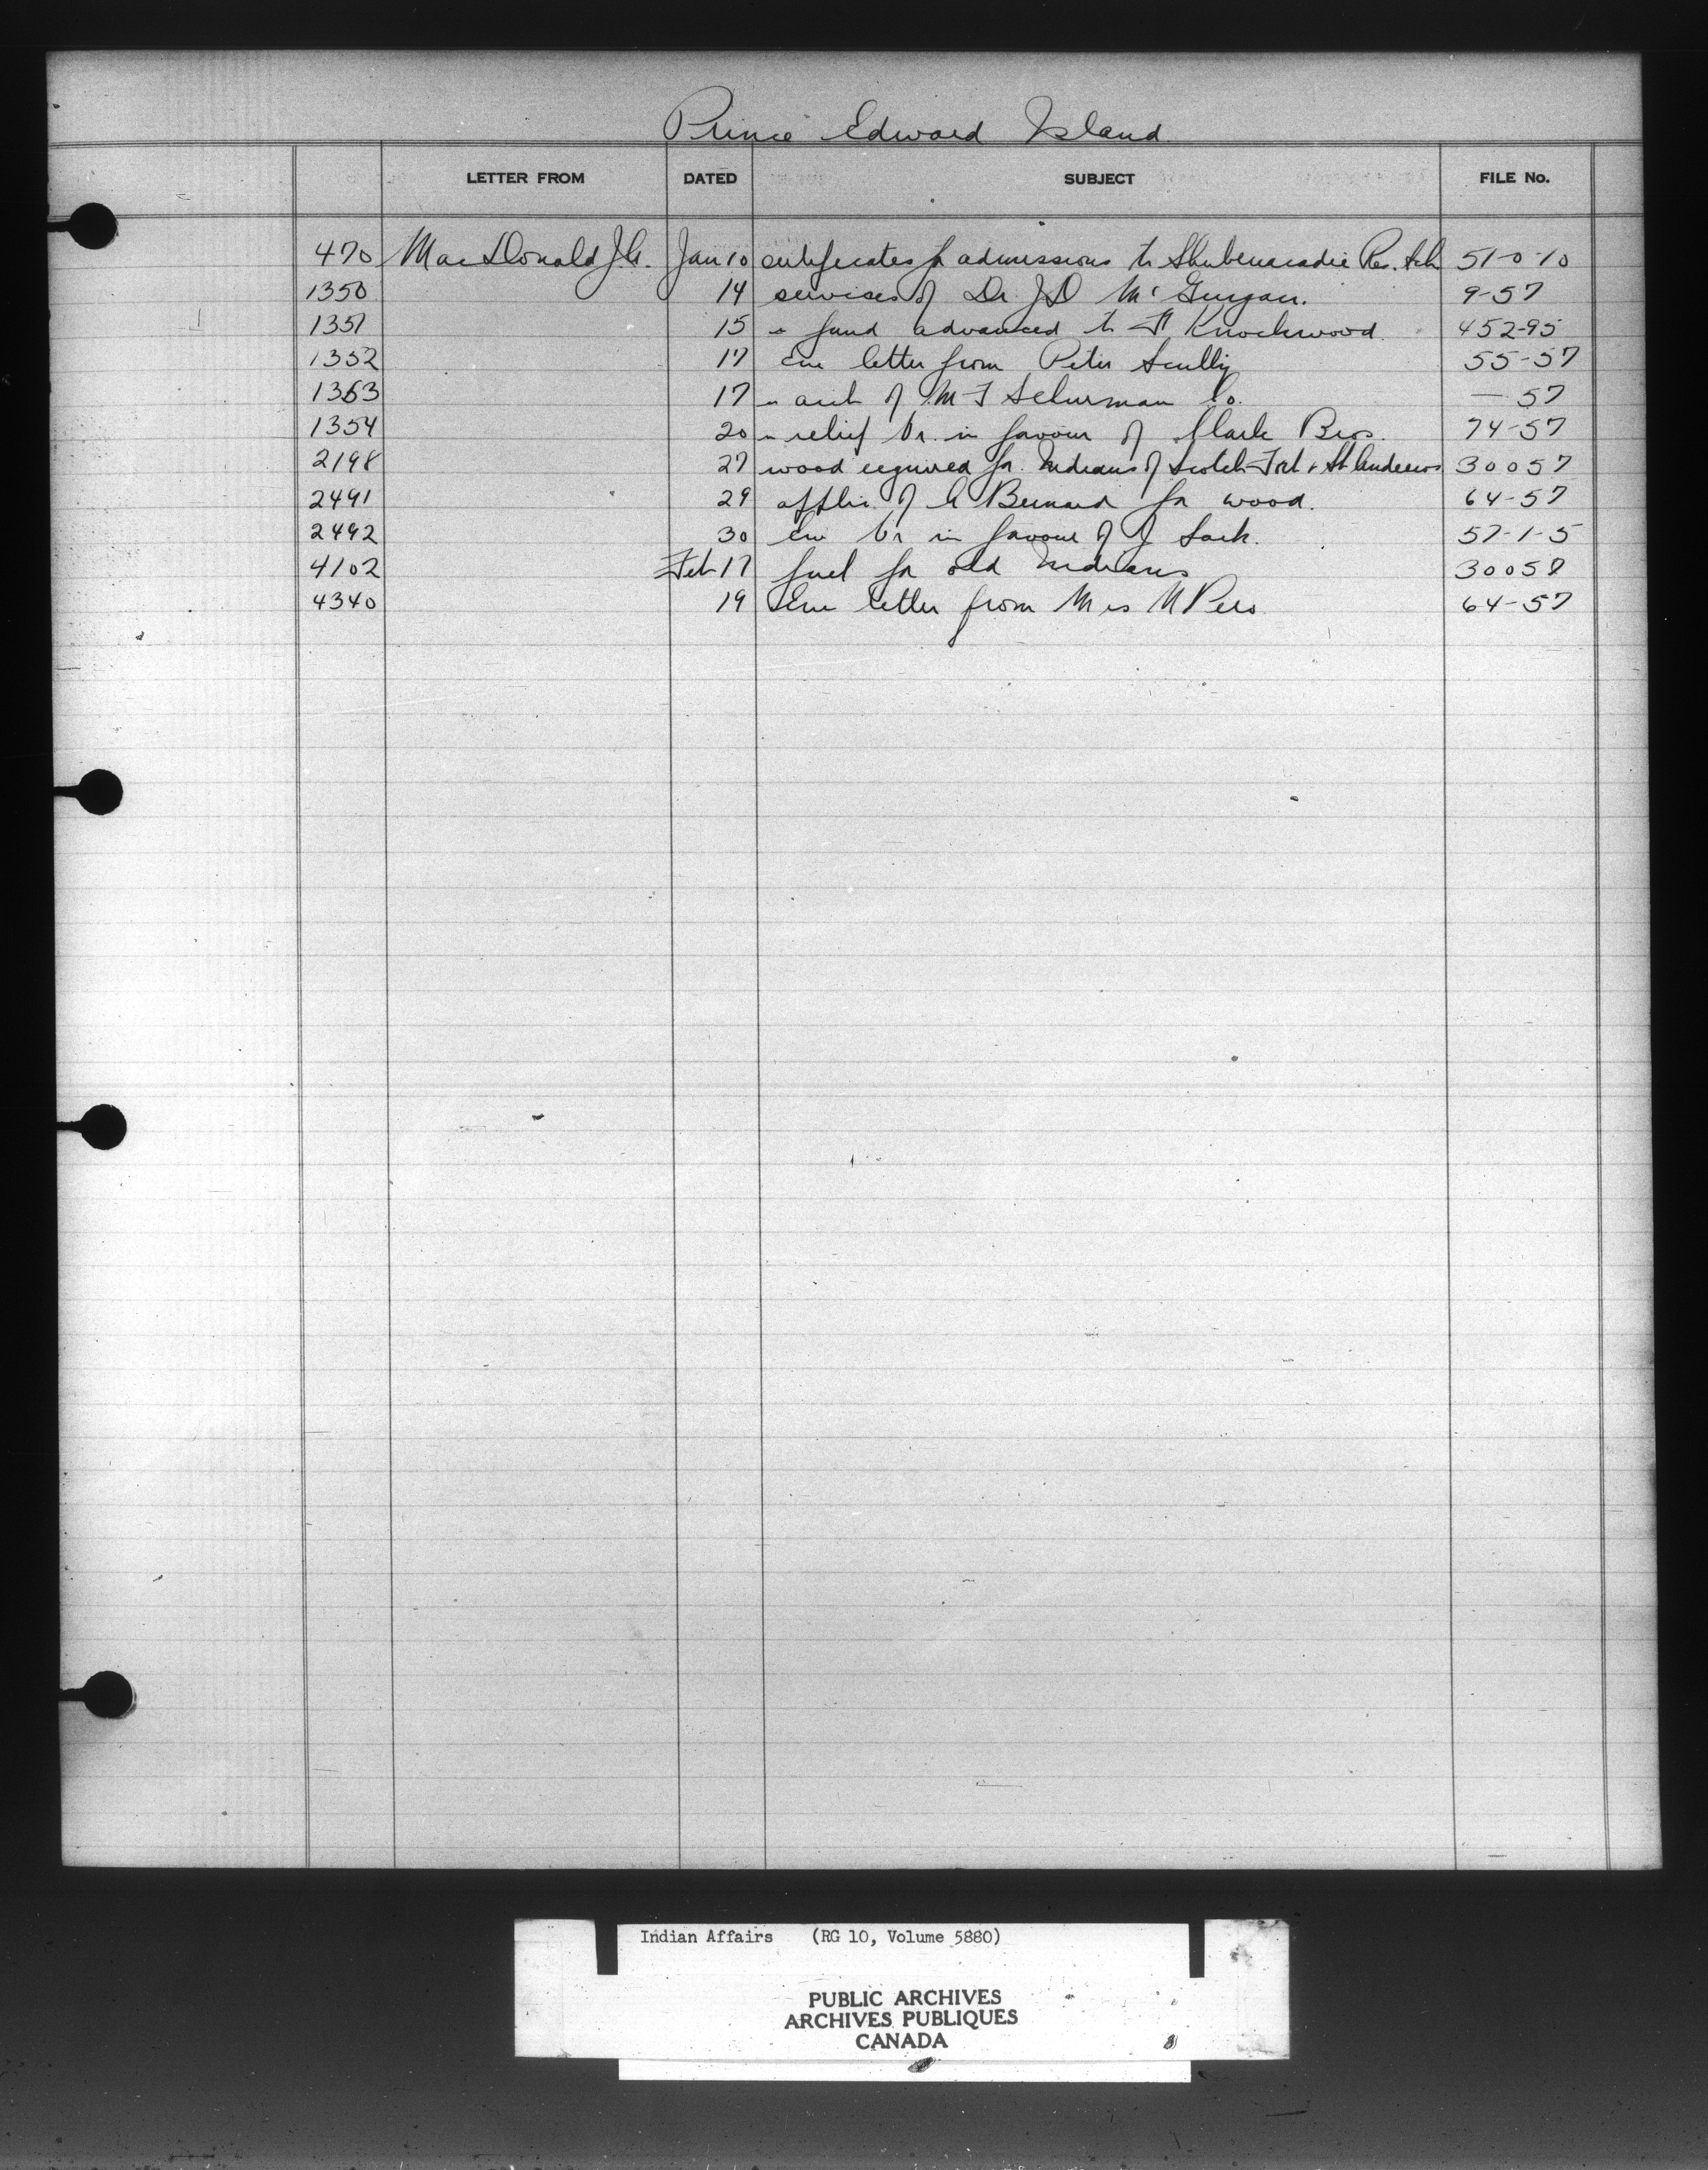 Prince Edward Island
LETTER FROM DATED SUBJECT FILE No.
470 MacDonald J.G. Jan 10 certificates for admissions to Shubenacadie Res. Sch 51-0-10
1350 14 services of Dr J D McGuigan. 9-57
1351 15 " fund advanced to F Knockwood 452-95
1352 17 Enc letter from Peter Scully 55-57
1353 17 " acct of M F Schurman Co. — 57
1354 20 " relief Vr. in favour of Clark Bros. 74-57
2198 27 wood required for Indians of Scotch Fort & St Andrews 30057
2491 29 applic. of Bernard for wood. 64-57
2492 30 Enc Vr in favour of J Sark. 57-1-5
4102 Feb 17 fuel for old Indians 30057
4340 19 Enc letter from Mrs M 64-57
Indian Affairs (RG 10, Volume 5880)
PUBLIC ARCHIVES
ARCHIVES PUBLIQUES
CANADA